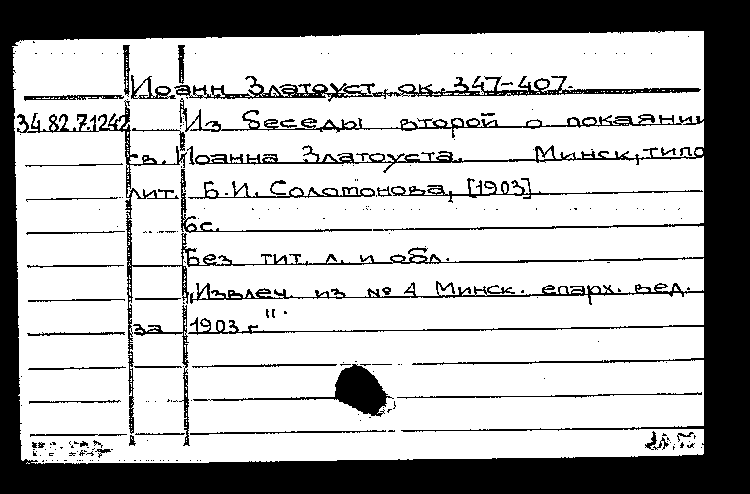 Иоанн Златоуст, ок. 347-407.
34.82.7.1242 Из беседы второй о покаянии
св. Иоанна Златоуста. Минск, типо
лит. Б.И. Соломонова, [1903].
6с.
Без тит. л. и обл.
„Извлеч. из № 4 Минск. епарх. вед.
за 1903 г".